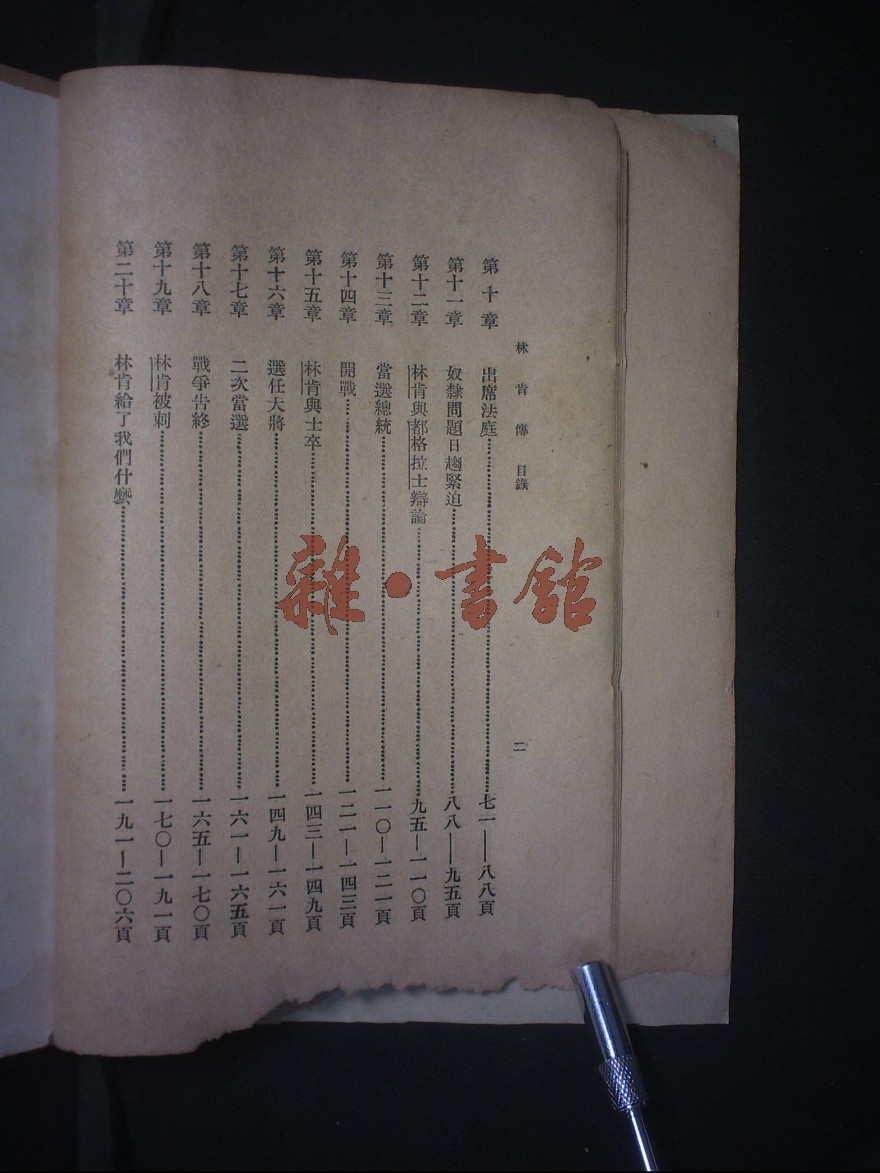 林肯傳 目錄 二
第十章 出席法庭……………………七一——八八頁
第十一章 奴隸問題日趨緊迫……………………八八——九五頁
第十二章 林肯與都格拉士辯論……………………九五—一一〇頁
第十三章 當選總統……………………一一〇—一二一頁
第十四章 開戰……………………一二一—一四三頁
第十五章 林肯與士卒……………………一四三—一四九頁
第十六章 選任大將……………………一四九—一六一頁
第十七章 二次當選……………………一六一—一六五頁
第十八章 戰爭告終……………………一六五—一七〇頁
第十九章 林肯被刺……………………一七〇—一九一頁
第二十章 林肯給了我們什麼……………………一九一—二〇六頁
雜·書館